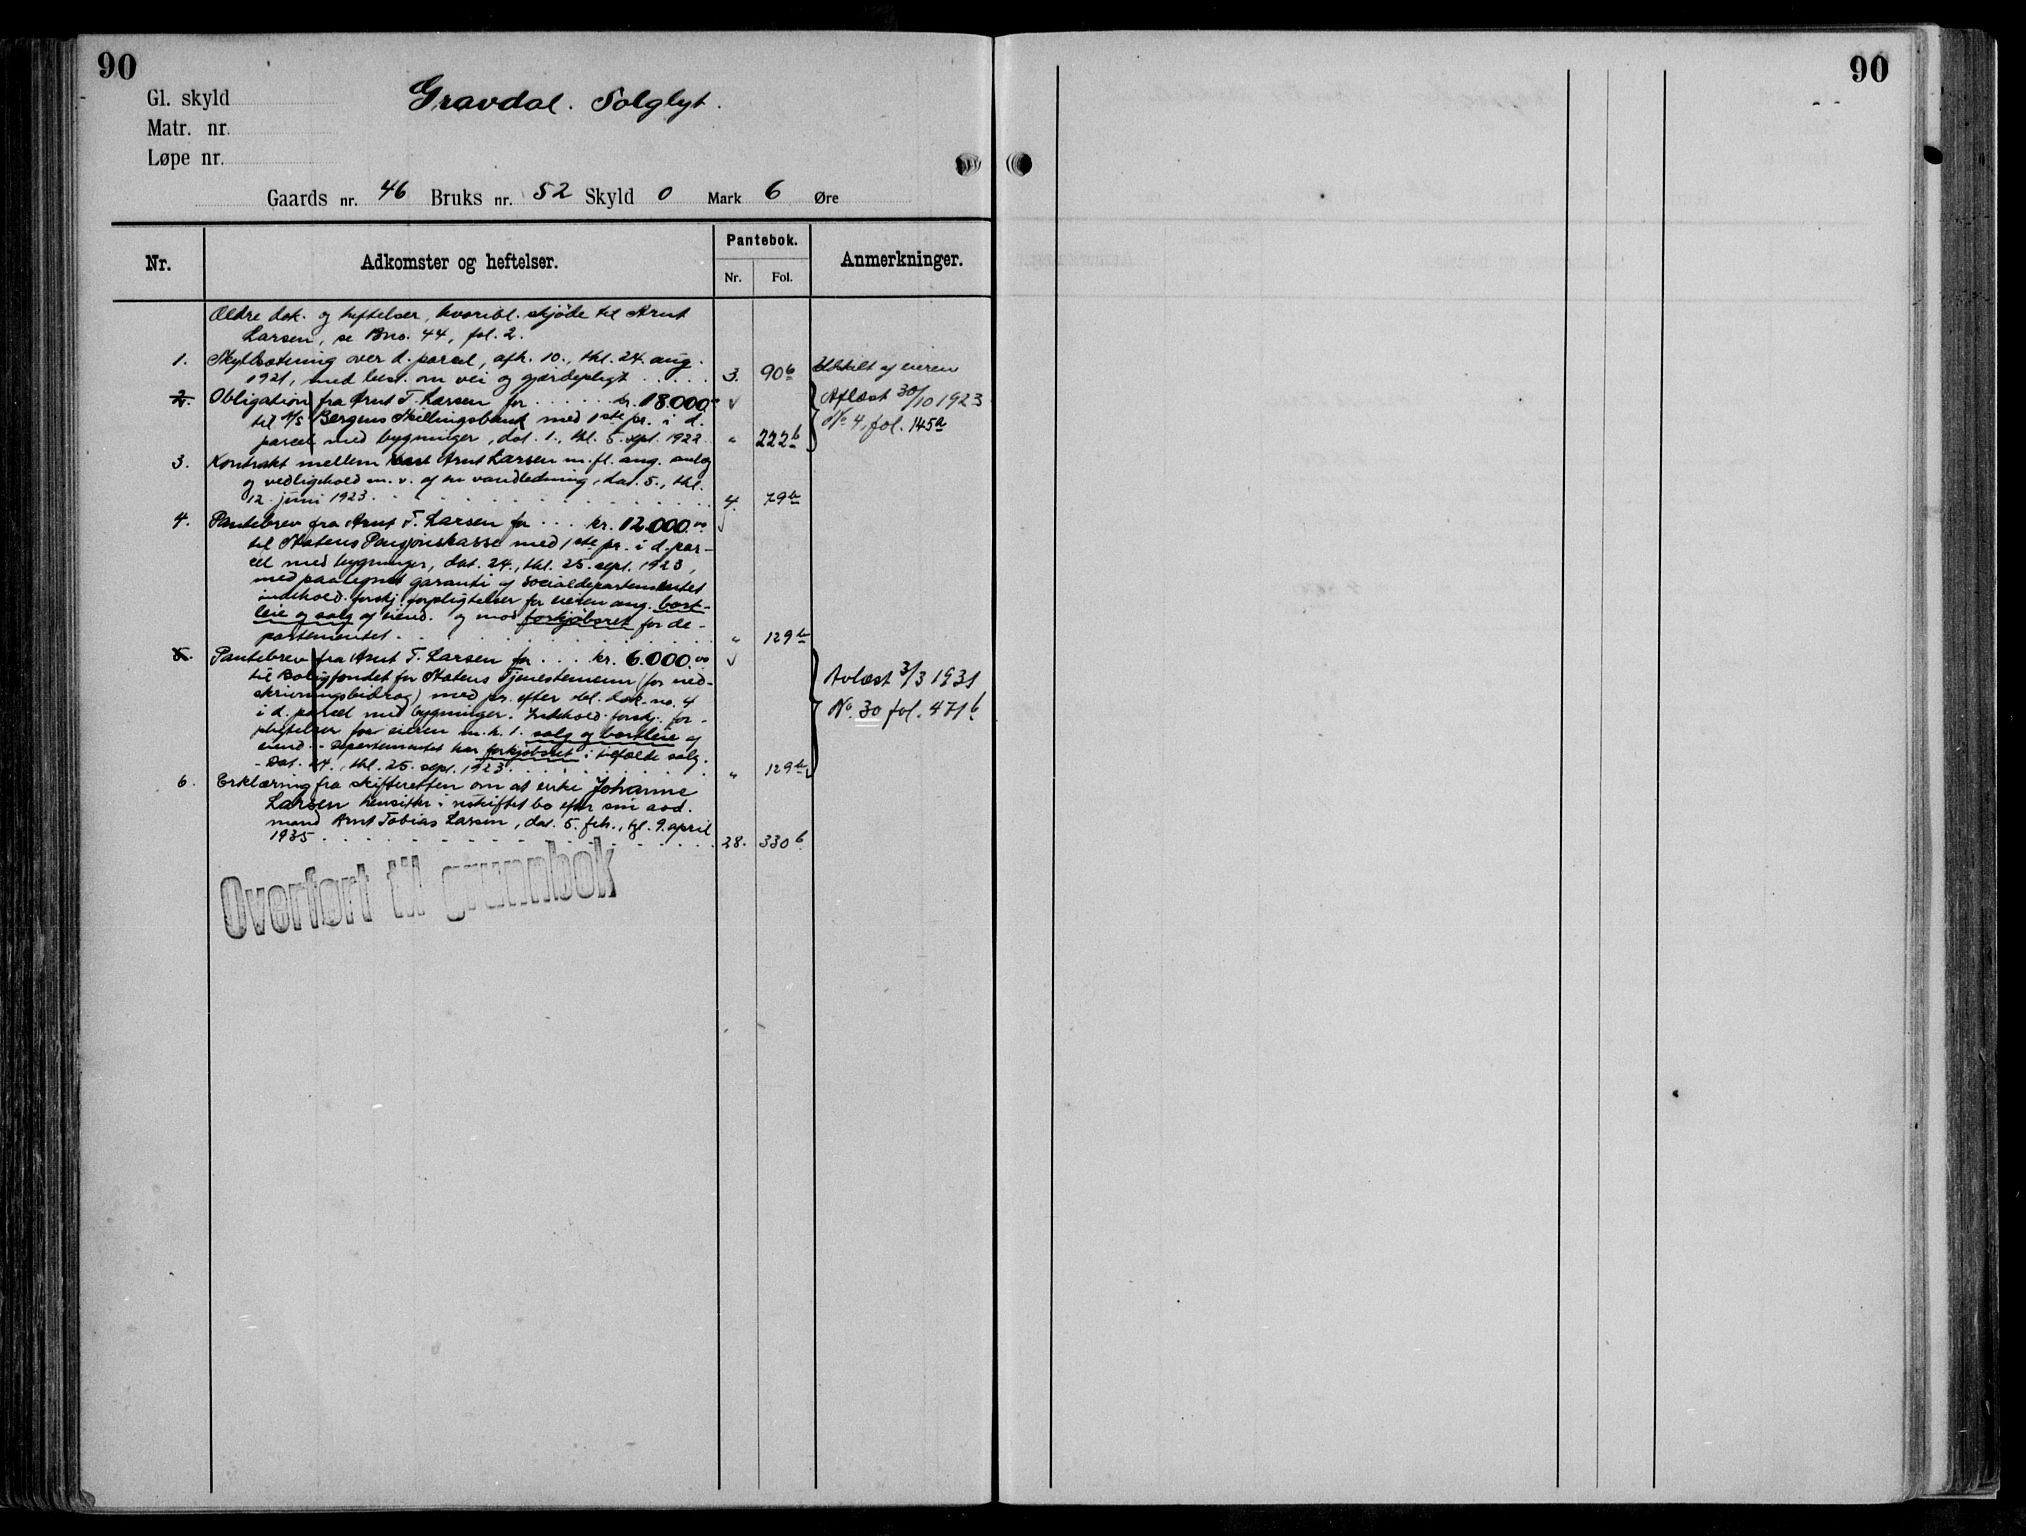 90
90
Gl. skyld
Gravdal. Solglyt.
Matr. nr.
Løpe nr.
Gaards nr. 46 Bruks nr. 52 Skyld 0 Mark 6 Øre
Nr.
Adkomster og heftelser.
Pantebok.
Nr. Fol.
Anmerkninger.
Ældre dok. og heftelser, hvoribl. skjøde til Arnt
Larsen, se Bno. 44, fol. 2.
1. Skyldsætning over d. parcel, afh. 10., thl. 24. aug.
1921, med best. om vei og gjerdepligt . . . . . 3. 90b Utskilt af eieren
2. Obligation fra Arnt T. Larsen for . . . . . kr. 18.000
til A/S Bergens Skillingsbank med 1ste pr. i d.
parcel med bygninger, dat. 1., thl. 5. sept. 1922. " 222b
Aflæst 30/10 1923
No 4, fol. 145a
3. Kontrakt mellem Arnt Larsen m. fl. ang. anlæg
og vedligehold m. v. af en vandledning, dat. 5., thl.
12. juni 1923 . . . . . 4. 79b
4. Pantebrev fra Arnt T. Larsen for . . . kr. 12.000.00
til Statens Pensjonskasse med 1ste pr. i d. par-
cel med bygninger, dat. 24., thl. 25. sept. 1923,
med paategnet garanti af Socialdepartementet
indehold. forskj. forpligtelser for eieren ang. bort-
leie og salg af eiend. og med forkjøbsret for de-
partementet. . . . . " 129b
5. Pantebrev fra Arnt T. Larsen for . . . kr. 6.000.00
til Boligfondet for Statens Tjenestemenn (for ned-
skrivningsbidrag) med pr. efter dok. no. 4
i d. parcel med bygninger. Indehold. forskj. for-
pligtelser for eieren m.h.t. salg og bortleie af
eiend. - Departementet har forkjøbsret i tilfælde salg.
- Dat. 24., thl. 25. sept. 1923. . . . . " 129b
Avlæst 3/3 1931
No. 30 fol. 471b
6. Erklæring fra skifteretten om at enke Johanne
Larsen hensitter i uskiftet bo efter sin avd.
mand Arnt Tobias Larsen, dat. 5. feb., tgl. 9. april
1935 . . . . . 28. 330b.
Overført til grunnbok